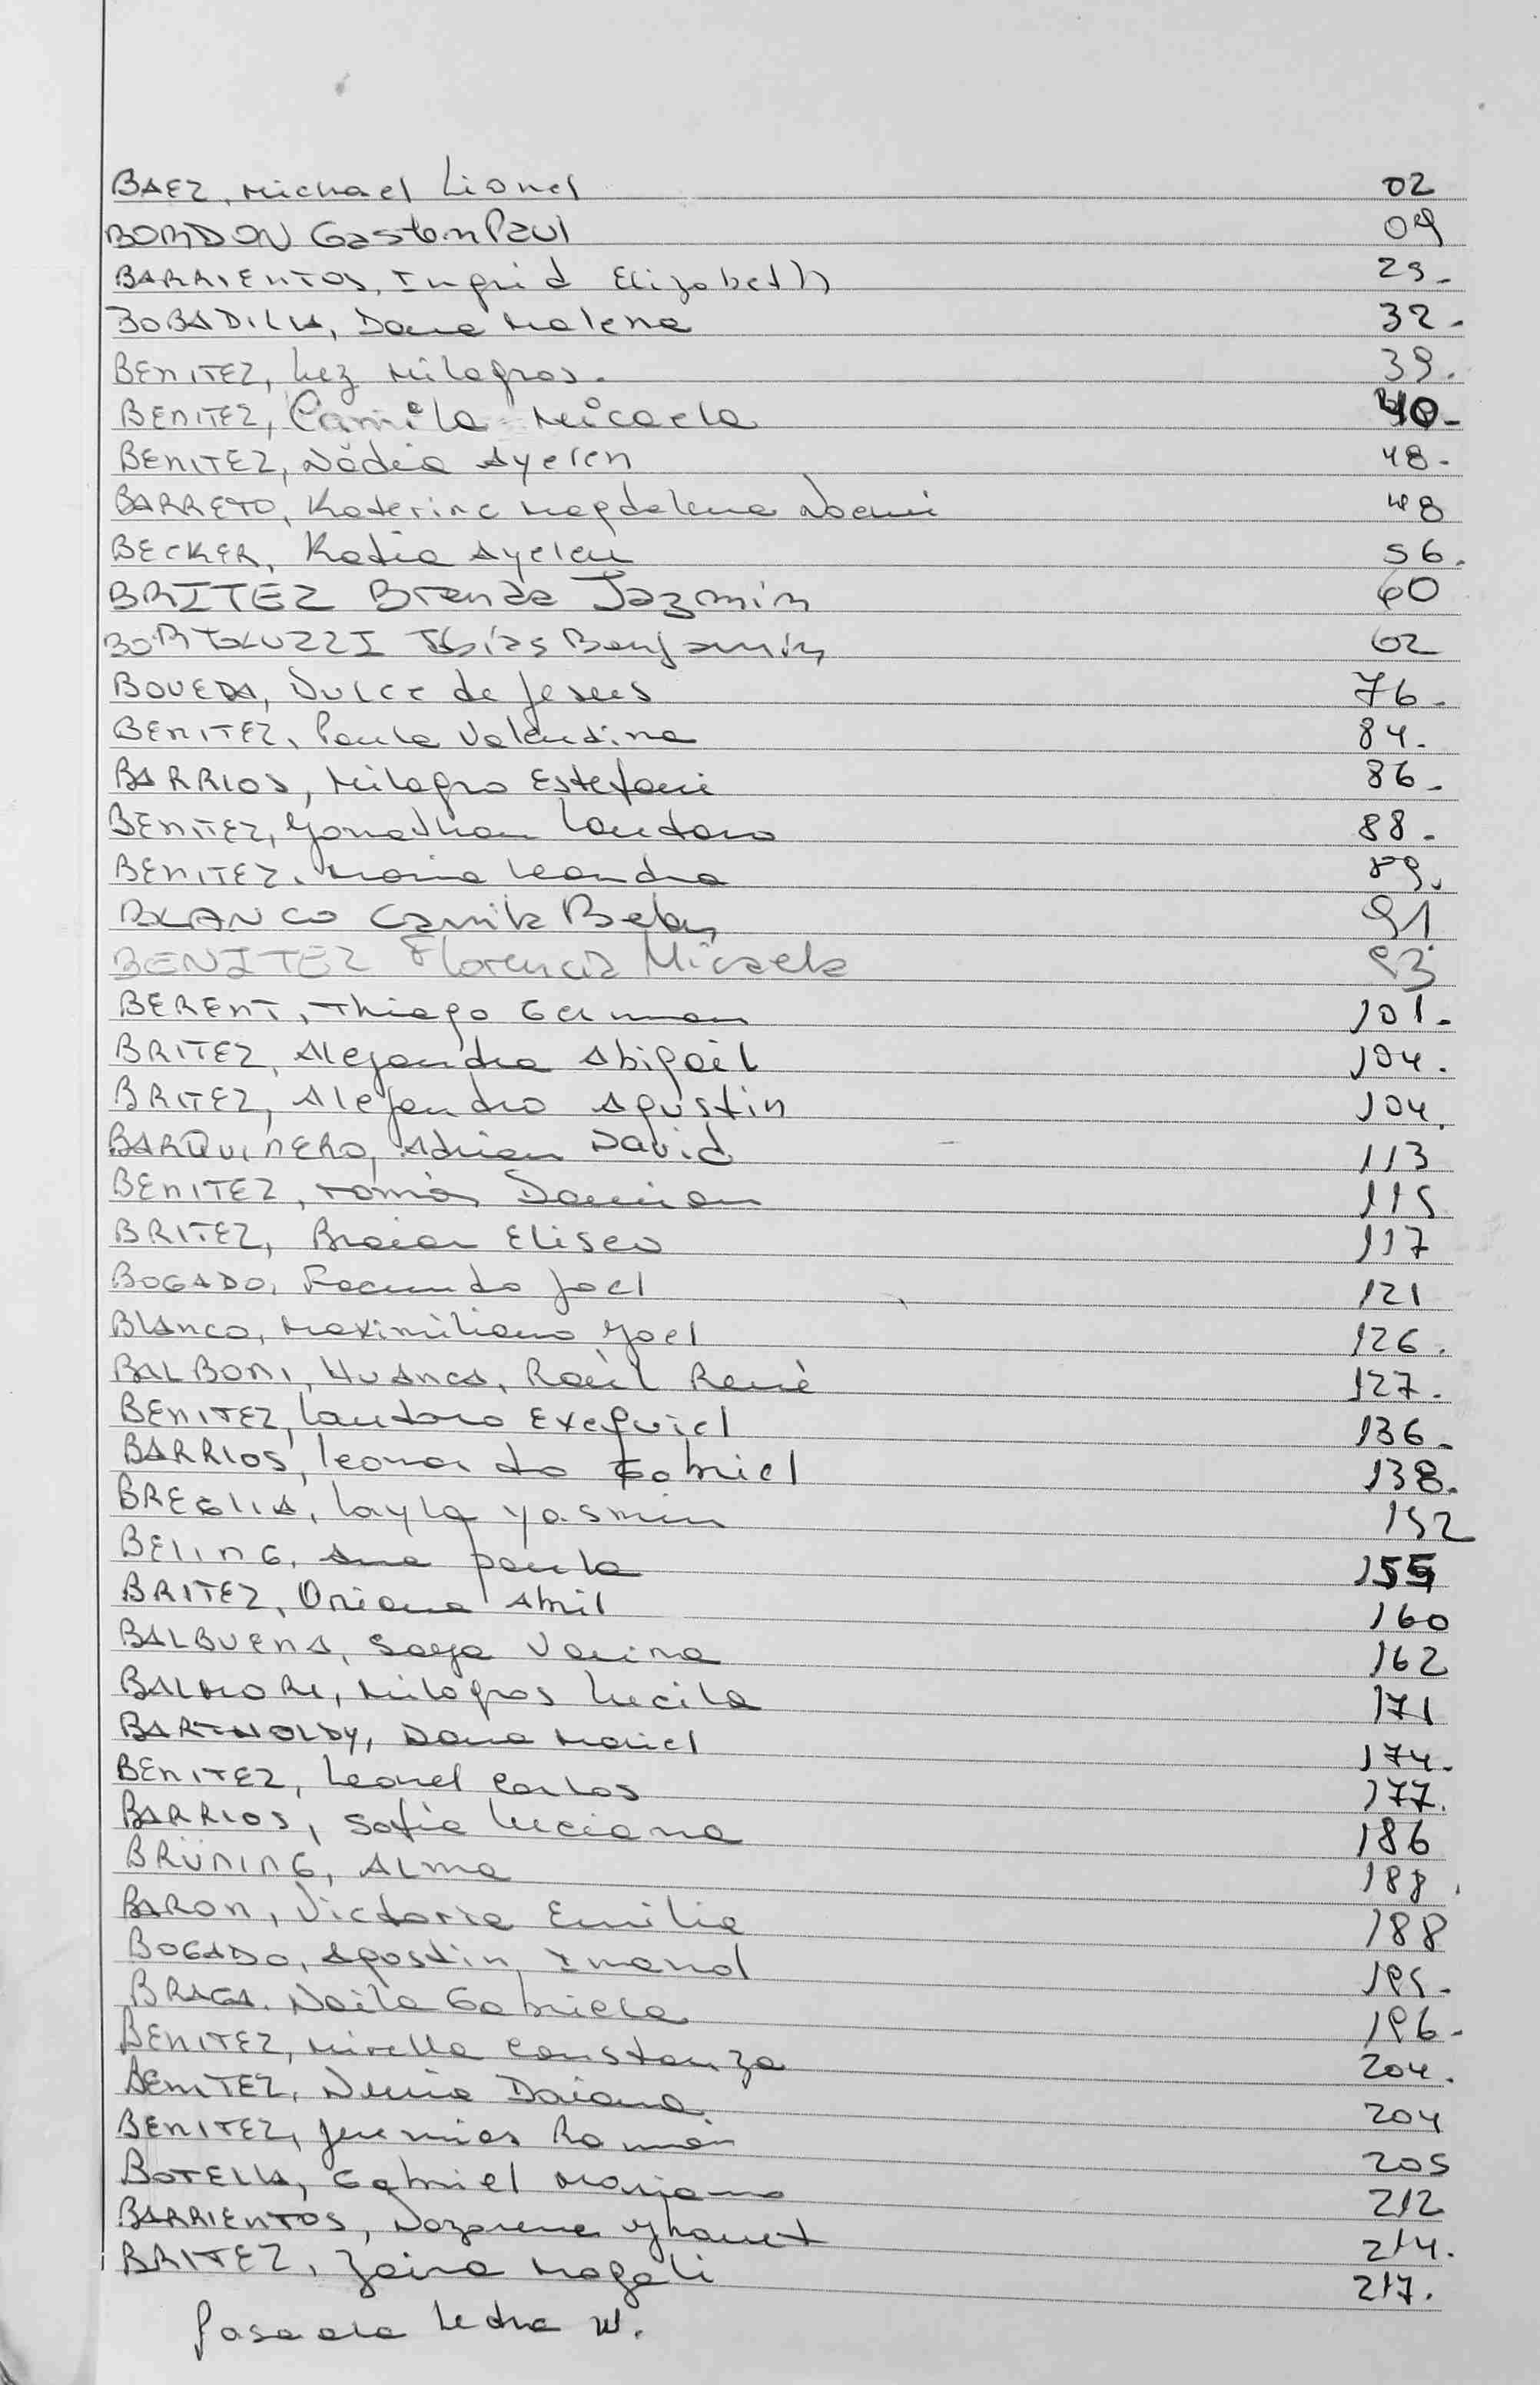 BAEZ, Michael Lionel 02
BORDON Gaston Paul 09
BARRIENTOS, Ingrid Elizabeth 29-
BOBADILLA, Dana Malena 32-
BENITEZ, Luz Milagros. 39.
BENITEZ, Camila Micaela 40-
BENITEZ, Nadia Ayelen 48-
BARRETO, Katerine Magdalena Noemi 48
BECKER, Katia Ayelen 56.
BRITEZ Brenda Jazmin 60
BORTOLUZZI Tobias Benjamin 62
BOVEDA, Dulce de Jesus 76-
BENITEZ, Paula Valentina 84.
BARRIOS, Milagro Estefani 86-
BENITEZ, Yonathan Lautaro 88-
BENITEZ, Maria Leandra 89.
BLANCO Camila Belen 91
BENITEZ Florencia Micaela 93
BERENT, Thiago German 101-
BRITEZ, Alejandra Abigail 104.
BRITEZ, Alejandro Agustin 104.
BARQUINERO, Adrian David 113
BENITEZ, Tomás Damian 115
BRITEZ, Braian Eliseo 117
BOGADO, Facundo Joel 121
BLANCO, Maximiliano Yoel 126.
BALBONI, HUANCA, Raúl René 127.
BENITEZ, Lautaro Exequiel 136-
BARRIOS, Leonardo Gabriel 138.
BREGLIA, Layla Yasmin 152
BELING, Ana Paula 155
BRITEZ, Oriana Abril 160
BALBUENA, Saya Varina 162
BALMORI, Milagros Lucila 171
BARTHOLDY, Dana Mariel 174.
BENITEZ, Leonel Carlos 177.
BARRIOS, Sofia Luciana 186
BRÜNING, Alma 188.
BARON, Victoria Emilia 188
BOGADO, Agostin Imanol 195-
BRAGA. Naila Gabriela 196-
BENITEZ, Mirella Constanza 204.
BENITEZ, Nuria Daiana. 204
BENITEZ, Jeremias Román 205
BOTELLA, Gabriel Mariano 212
BARRIENTOS, Nazarena Yhanet 214.
BRITEZ, Zaira Magali 217.
Pasa a la Letra W.